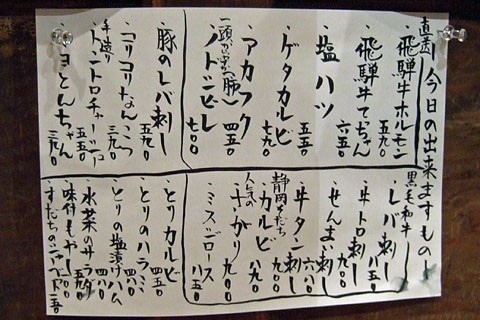 今日の出来ますもの
直送
・飛騨牛ホルモン 五九〇
・飛騨牛てっちゃん 六五〇
・塩ハツ 五五〇
・ゲタカルビ 七九〇
・アカフク(肺) 四五〇
・ノドシビレ 七〇〇
・豚のレバ刺し 五九〇
・コリコリなんこつ 三九〇
手造り
・トントロチャーシュー 五五〇
・ヨとんちゃん 三九〇
黒毛和牛
・レバ刺し 八五〇
・牛トロ刺し 九〇〇
・せんまい刺し
・牛タン刺し 六八〇
静岡そだち
・カルビ 八九〇
人気の
・さがり 九〇〇
・ミスジロース
・とりカルビ 四五〇
・とりのハラミ 四五〇
・とりの塩漬けハム 四八〇
・水菜のサラダ 五九〇
・味付もやし 三〇〇
・すだちのシャーベット 二五〇